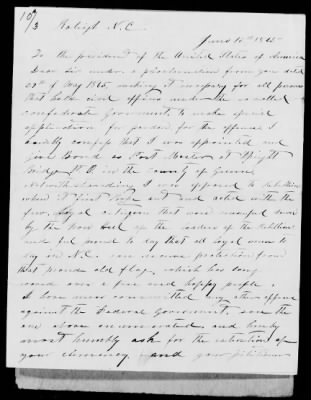 10/3
Raleigh N.C.
June 10th 1865
To the president of the United States of America
Dear Sir under a proclamation from you dated
29th of May 1865, making it necessary for all persons
that hold civil offices under the so called
confederate Government to make special
application for pardon for the offence I
humbly confess that I was appointed and
give Bond as Post Master at
Bridge N.C. in the county of Greene
Notwithstanding I was opposed to rebellion
when it first broke out and acted with the
few Loyal citizens that were
by the iron heel of the leaders of the Rebellion
and feel proud to say that all loyal men to
day in N.C. can receive protection from
that proud old flag, which has long
waved over a free and happy people.
I have never committed any other offence
against the Federal Government, save the
one above enumerated and
most humbly ask for the extention of
your clemency, and your petitioner